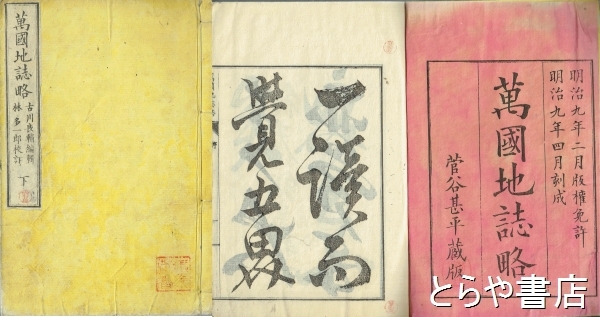 萬國地誌略
古川良輔編輯
林多一郎校訂
下
一讀而
覺五異
明治九年二月版權免許
明治九年四月刻成
萬國地誌略
菅谷甚平藏版
とらや書店